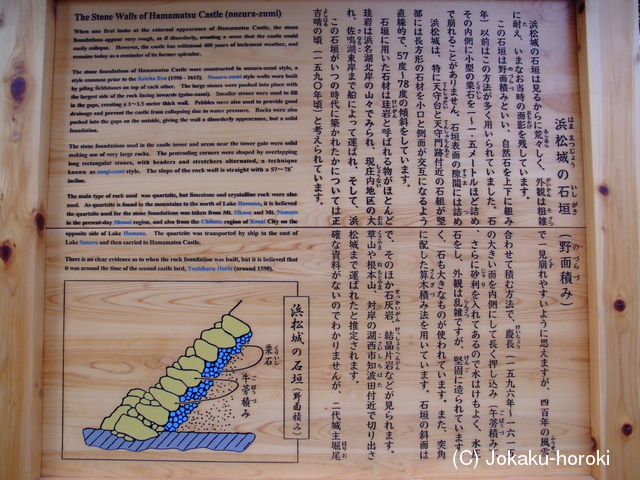 The Stone Walls of Hamamatsu Castle (nozura-zumi)
When one first looks at the external appearance of Hamamatsu Castle, the stone
foundations appear very rough, as if disorderly, creating a sense that the castle could
easily collapse. However, the castle has withstood 400 years of inclement weather, and
remains today as a reminder of its former splendor.
The stone foundations of Hamamatsu Castle were constructed in nozura-zumi style, a
style common prior to the Keicho Era (1596 - 1615). Nozura-zumi style walls were built
by piling fieldstones on top of each other. The large stones were pushed into place with
the largest side of the rock facing inwards (gobo-zumi). Smaller stones were used to fill
in the gaps, creating a 1~1.5 meter thick wall. Pebbles were also used to provide good
drainage and prevent the castle from collapsing due to water pressure. Rocks were also
pushed into the gaps on the outside, giving the wall a disorderly appearance, but a solid
foundation.
The stone foundations used in the castle tower and areas near the tower gate were solid
making use of very large rocks. The protruding corners were shaped by overlapping
long rectangular stones, with headers and stretchers alternated, a technique
known as sangi-zumi style. The slope of the rock wall is straight with a 57~78°
incline.
The main type of rock used was quartzite, but limestone and crystalline rock were also
used. As quartzite is found in the mountains to the north of Lake Hamana, it is believed
the quartzite used for the stone foundations was taken from Mt. Okusa and Mt. Nemoto
in the present-day Shonai region, and also from the Chibata region of Kosai City on the
opposite side of Lake Hamana. The quartzite was transported by ship to the east of
Lake Sanaru and then carried to Hamamatsu Castle.
There is no clear evidence as to when the rock foundation was built, but it is believed that
it was around the time of the second castle lord, Yoshiharu Horio (around 1590).
浜松城の石垣(野面積み)
浜松城の石垣は見るからに荒々しく、外観は粗雑で一見崩れやすいように思えますが、四百年の風雪
に耐え、いまなお当時の面影を残しています。
この石垣は野面積みといい、自然石を上下に組み合わせて積む方法で、慶長(一五九六年~一六一五
年)以前はこの方法が多く用いられていました。石の大きい面を内側にして長く押し込み(牛蒡積み)、
その内側に小型の栗石を1~1.5メートルほど詰め、さらに砂利を入れてあるので水はけもよく、水圧
で崩れることがありません。石垣表面の隙間には詰め石をし、外観は乱雑ですが、堅固に造られています。
浜松城は、特に天守台と天守門跡付近の石組が堅く、石も大きなものが使われています。また、突角
部には長方形の石材を小口と側面が交互になるように配した算木積み法を用いています。石垣の斜面は
直線的で、57度~78度の傾斜をしています。
石垣に用いた石材は珪岩と呼ばれる物がほとんどで、そのほか石灰岩、結晶片岩などが見られます。
珪岩は浜名湖北岸の山々でみられ、現庄内地区の大草山や根本山、対岸の湖西市知波田付近で切り出さ
れ、佐鳴湖東岸まで船によって運ばれ、そして、浜松城まで運ばれたと推定されます。
この石垣がいつの時代に築かれたかについては正確な資料がないのでわかりませんが、二代城主堀尾
吉晴の頃(一五九〇年頃)と考えられています。
浜松城の石垣(野面積み)
栗石
牛蒡積み
(C) Jokaku-horoki